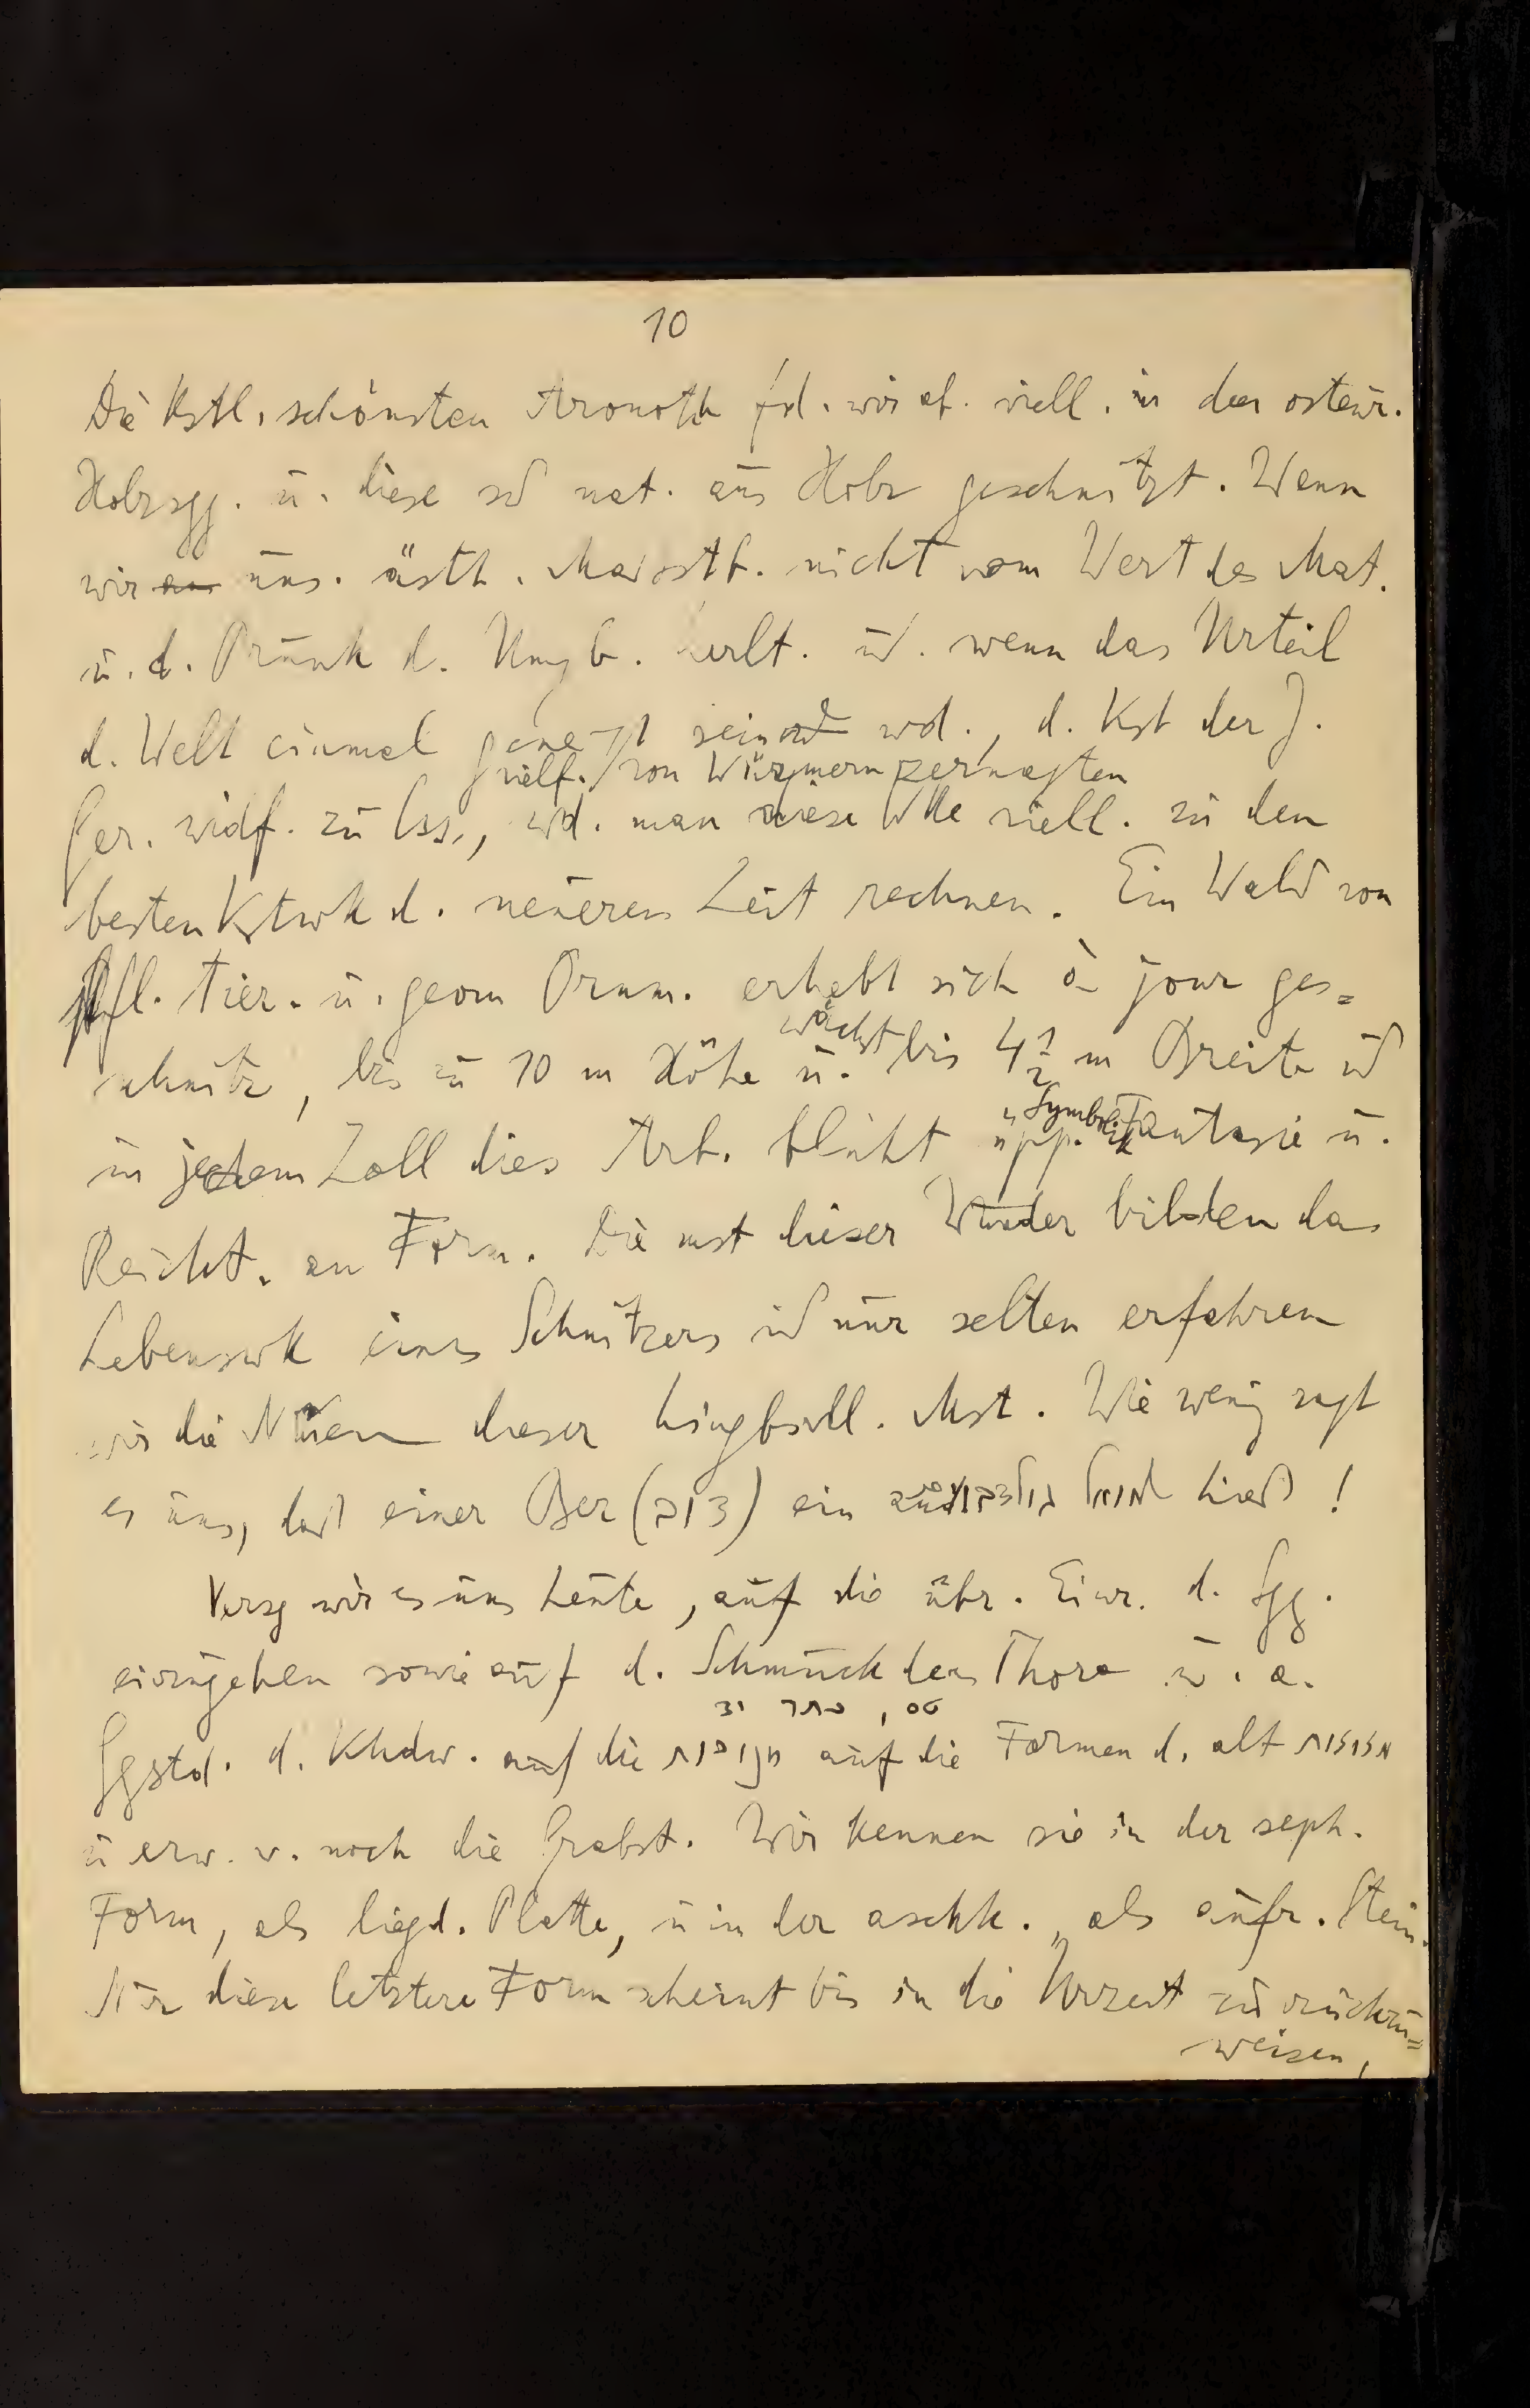 10
Die kstl. schönsten Aronoth fd. wir ab. viell. in den osteur.
Holzsgg. u. diese sd nat. aus Holz geschnitzt. Wenn
wir uns. ästh. Massstb. nicht vom Wert des Mat.
u. d. Prunk d. Umgb. herlt. ud. wenn das Urteil
d. Welt einmal geneigt sein wd., d. Kst der J.
vielf. von Würmern zernagten
Ger. widf. zu lss., wd. man diese Wke viell. zu den
besten Kstwk d. neueren Zeit rechnen. Ein Wald von
Pfl. Tier. u. geom Ornm. erhebt sich à jour ges=
wächst
schnitz, bis zu 10 m Höhe u. bis 4½ m Breite ud
Symbolik
in jedem Zoll dies Arb. blüht üpp. Fantasie u.
Reicht. an Form. Die mst dieser Wunder bilden das
Lebenswk eines Schnitzers ud nur selten erfahren
wir die Namen dieser hingbsvoll. Mst. Wie wenig sagt
es uns, dass einer Ber (דוב) ein hiess!
Versg wir es uns heute, auf die übr. Einr. d. Sgg.
einzugehen sowie auf d. Schmuck der Thora u. a.
Ggstd. d. Khdw. auf die auf die Formen d. alt
u erw. w. noch die Grabst. Wir kennen sie in der seph.
Form, als liegd. Platte, u in der aschk., als aufr. Stein.
Nur diese letztere Form scheint bis in die Urzeit zurückzu=
weisen,